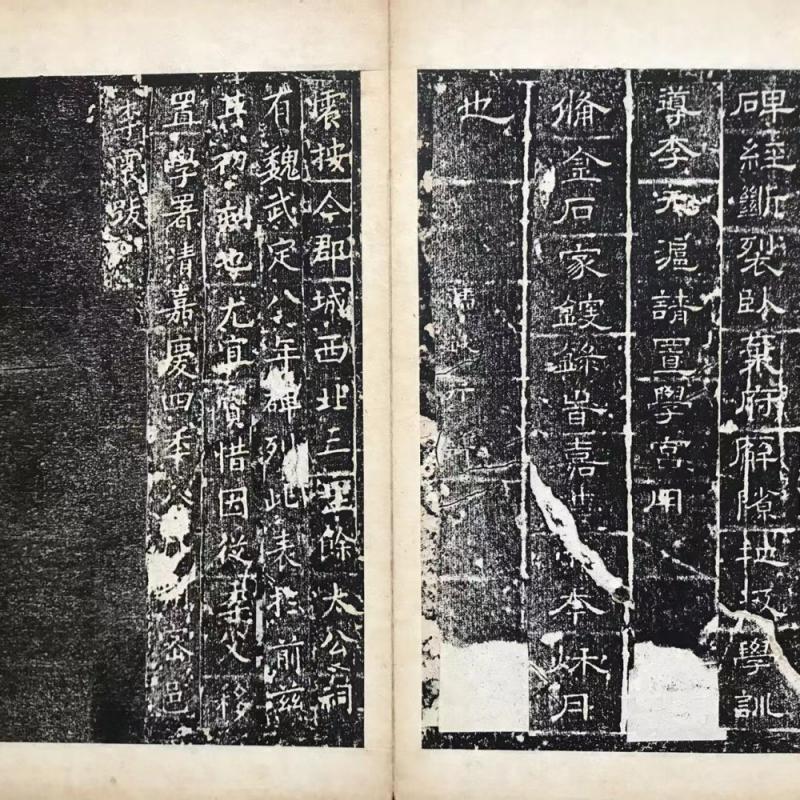 碑經斷裂臥棄府廨隙地故學訓
導李元滬請置學宮用
脩金石家鍰錄昔嘉
本妹月
也
震按今郡城西北三里餘太公祠
有魏武定八年碑列此表於前茲
其初刻也尤宜寶惜因從業父移
置學署清嘉慶四年八月
密邑
李震跋